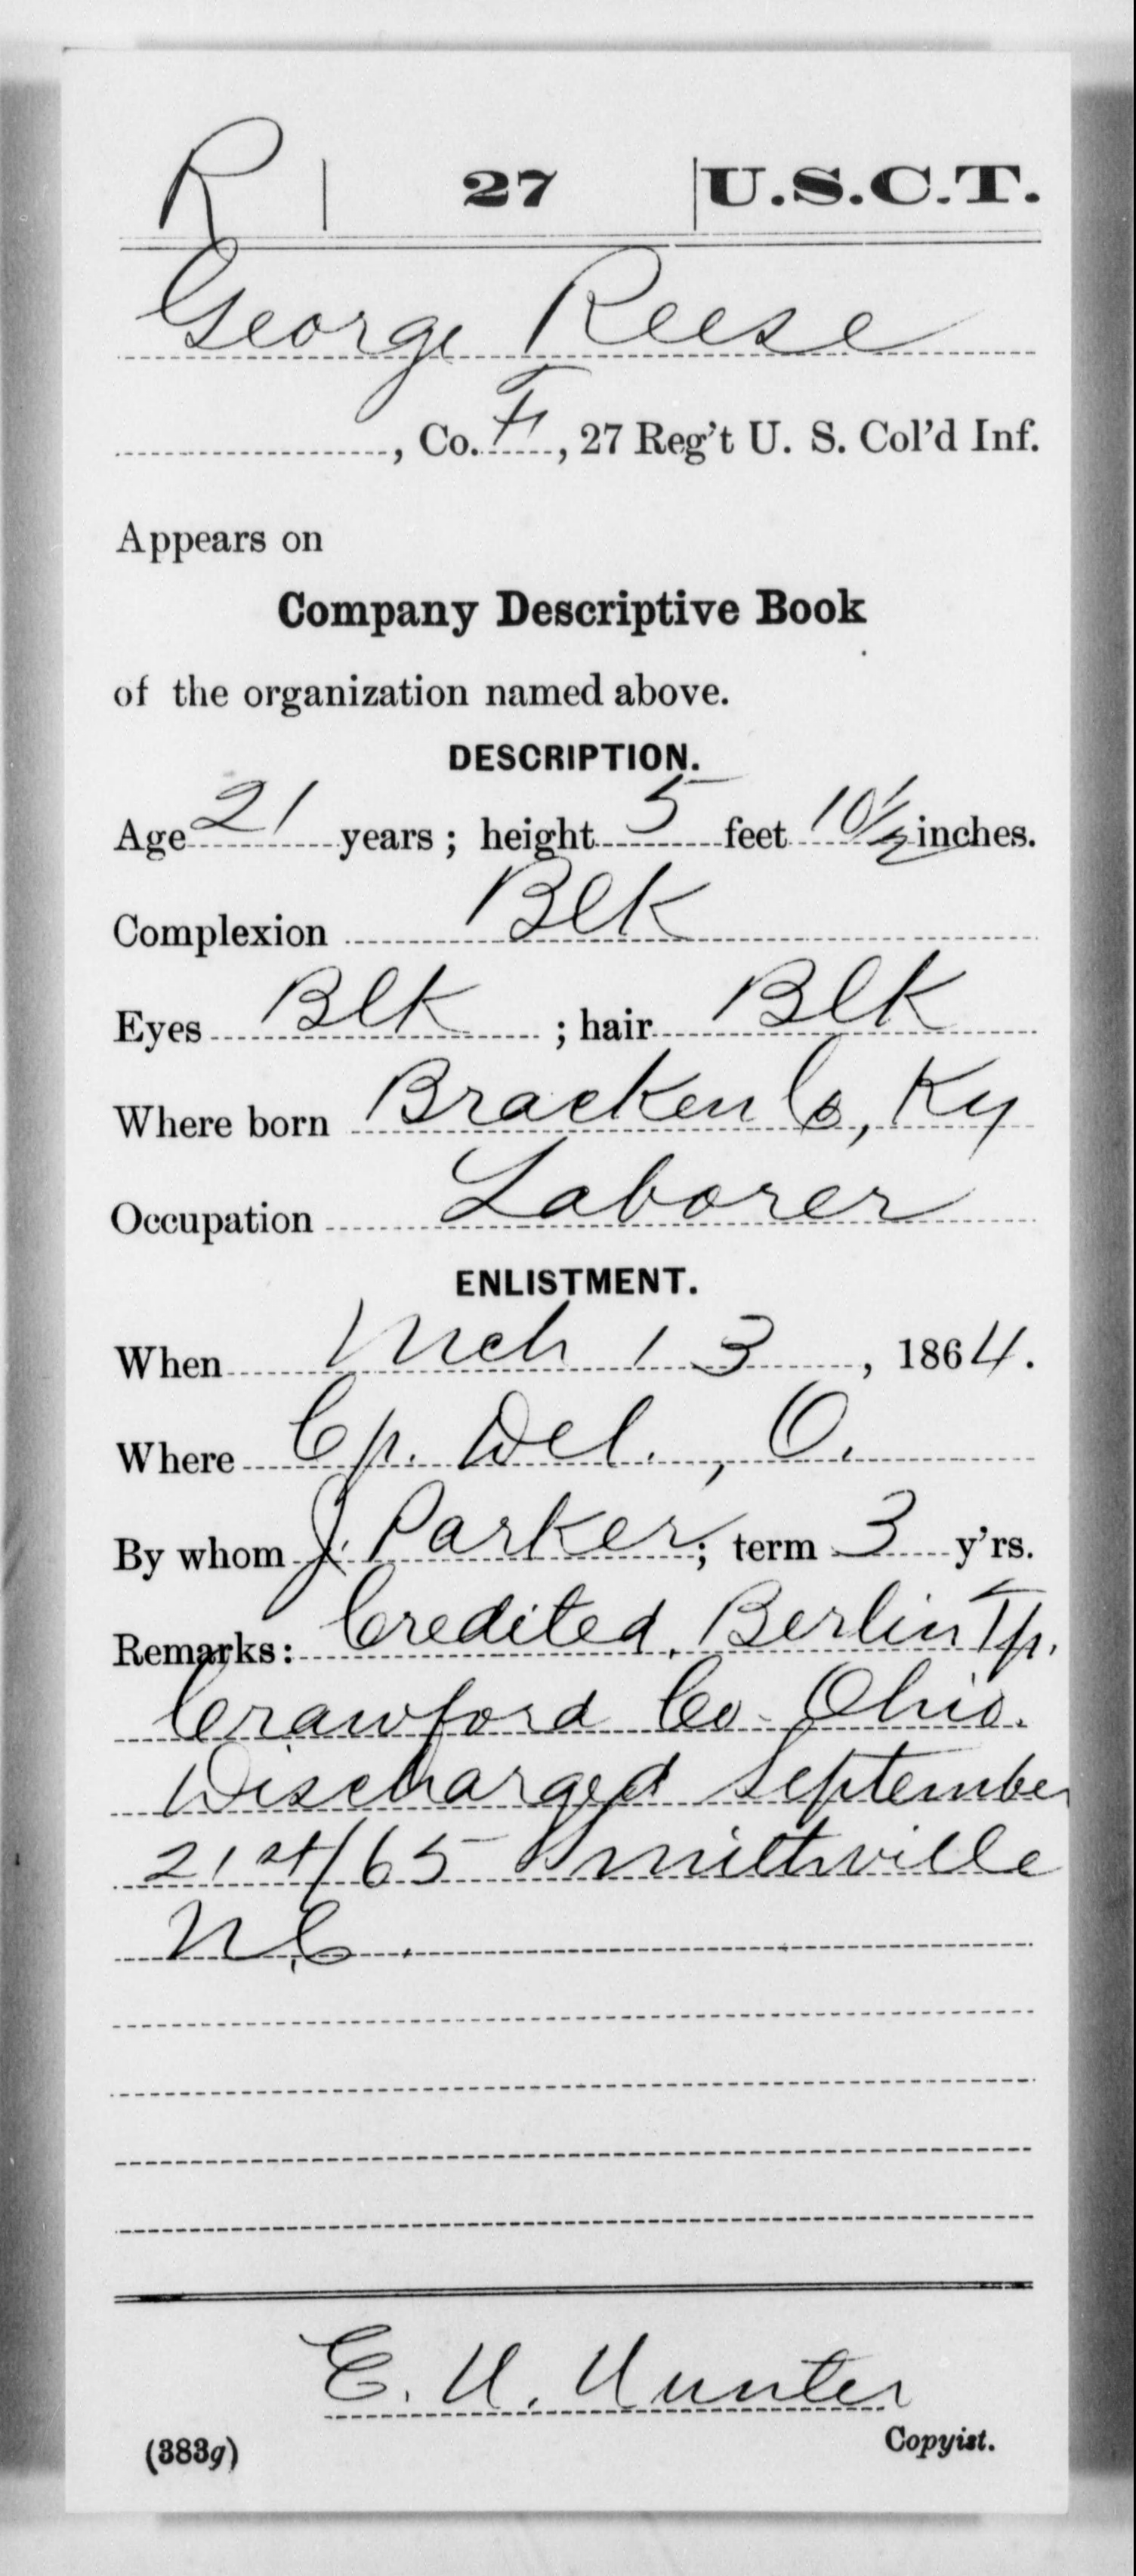 R 27 U.S.C.T.
George Reese
, Co. F, 27 Reg't U. S. Col'd Inf.
Appears on
Company Descriptive Book
of the organization named above.
DESCRIPTION.
Age 21 years; height 5 feet 10 1/2 inches.
Complexion Blk
Eyes Blk; hair Blk
Where born Bracken Co, Ky
Occupation Laborer
ENLISTMENT.
When Mch 13, 1864.
Where Cp. Del., O.
By whom J. Parker; term 3 y'rs.
Remarks: Credited Berlin Tp.
Crawford Co. Ohio.
Discharged September
21st/65 Smithville
N.C.
E. H. Hunter
Copyist.
(383g)